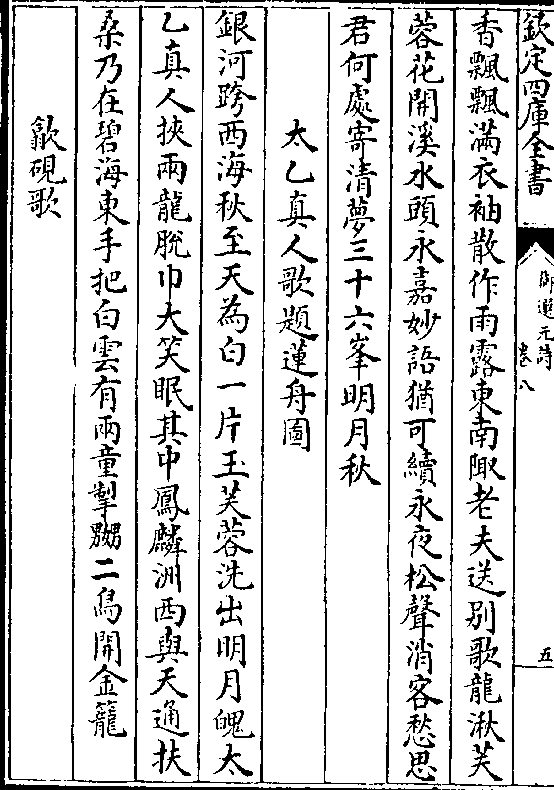 欽定四庫全書
御選元詩
卷八
五
香飄飄滿衣袖散作雨露東南陬老夫送别歌龍湫芙
蓉花開溪水頭永嘉妙語猶可續永夜松聲消客愁思
君何處寄清夢三十六峯明月秋
太乙真人歌題蓮舟圖
銀河跨西海秋至天為白一片玉芙蓉洗出明月魄太
乙真人挾兩龍脫巾大笑眠其中鳳麟洲西與天通扶
桑乃在碧海東手把白雲有兩童掣嬲二鳥開金籠
歙硯歌